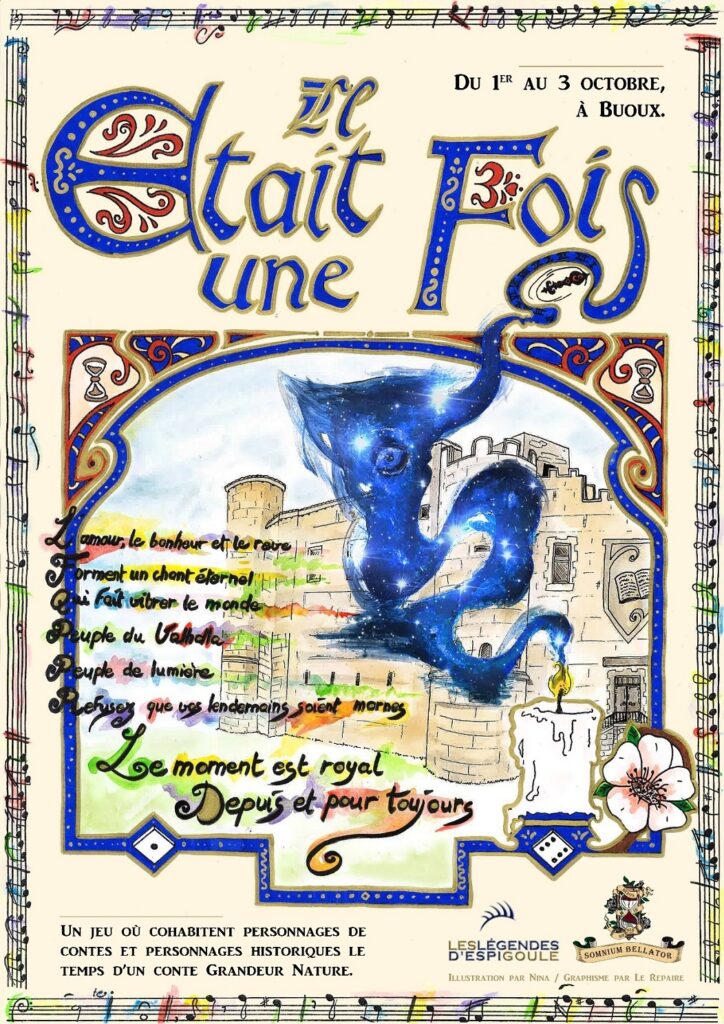 Du 1er au 3 octobre,
à Buoux.
Il
Etait
une
Fois
3
L'amour, le bonheur et le reve
Forment un chant éternel
Qui fait vibrer le monde
Peuple du Valhalla
Peuple de lumière
Refusez que vos lendemains soient mornes
Le moment est royal
Depuis et pour toujours
Un jeu où cohabitent personnages de
contes et personnages historiques le
temps d'un conte Grandeur Nature.
LES LÉGENDES
D'ESPIGOULE
SOMNIUM BELLATOR
Illustration par Nina / Graphisme par Le Repaire